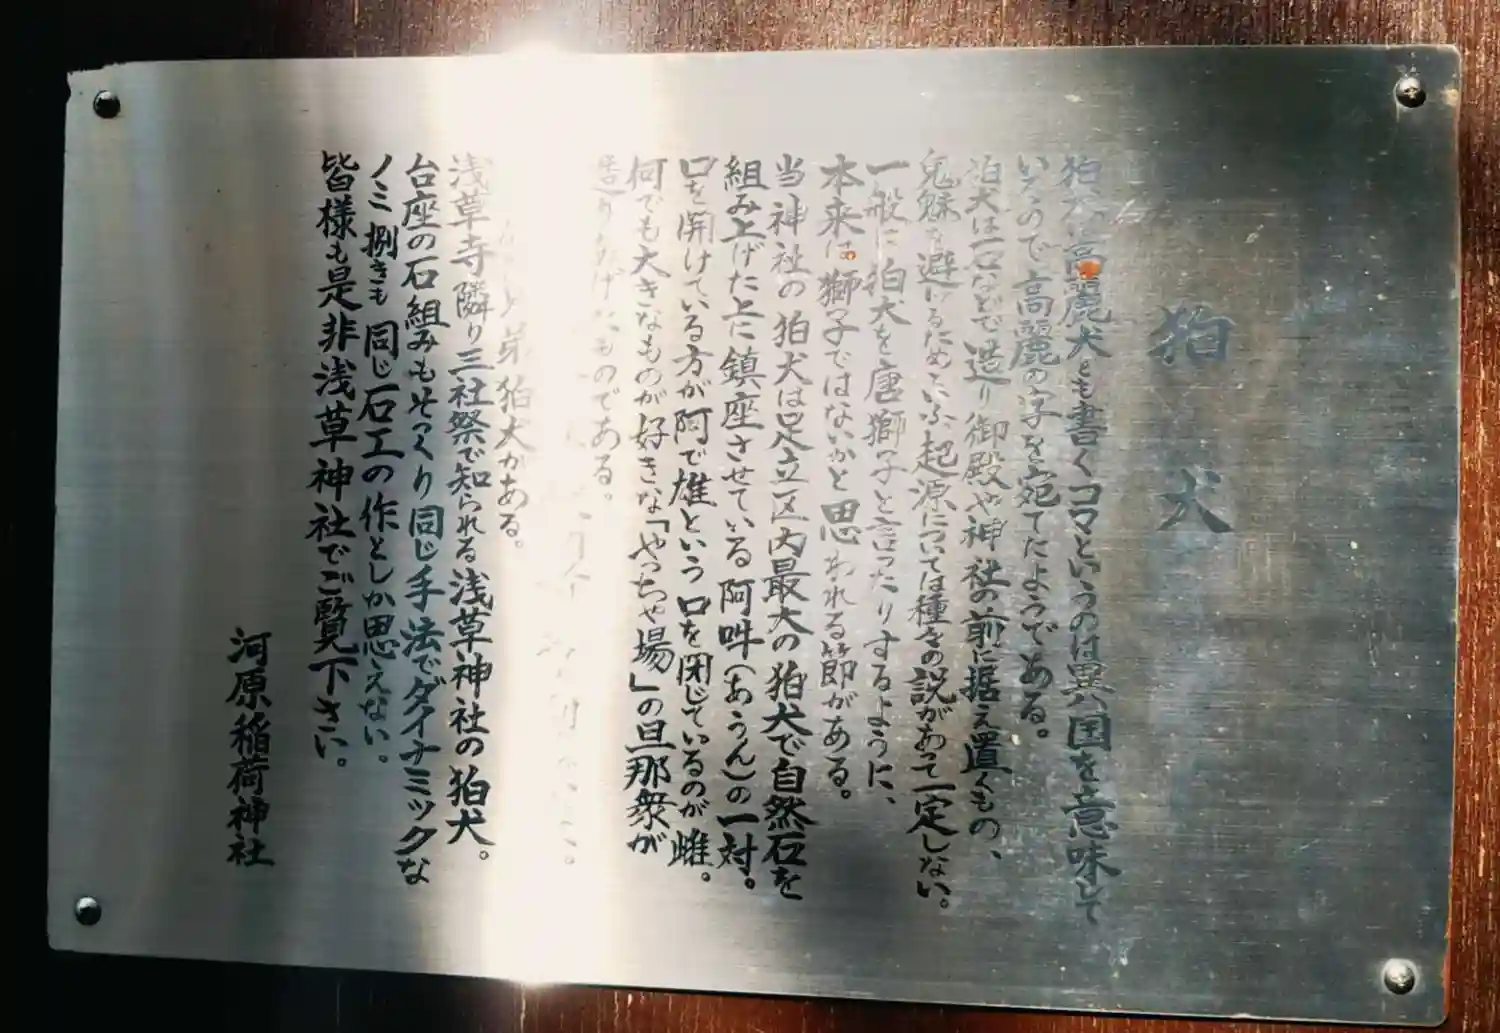 狛犬
狛犬は高麗犬とも書くコマというのは異国を意味して
いるので高麗の字を宛てたようである。
狛犬は一口などで造り御殿や神社の前に据え置くもの、
鬼魅を避けるためにいふ起源については種々の説があって一定しない。
一般に狛犬を唐獅子と言ったりするように、
本来は獅子ではないかと思われる節がある。
当神社の狛犬は足立区内最大の狛犬で自然石を
組み上げた上に鎮座させている阿吽(あうん)の一対。
口を開けている方が阿で雄という口を閉じているのが雌。
何でも大きなものが好きな「やっちゃ場」の旦那衆が
造りあげたものである。
狛犬がある。
浅草寺隣り三社祭で知られる浅草神社の狛犬。
台座の石組みもそっくり同じ手法でダイナミックな
ノミ捌きも同じ石工の作としか思えない。
皆様も是非浅草神社でご覧下さい。
河原稲荷神社